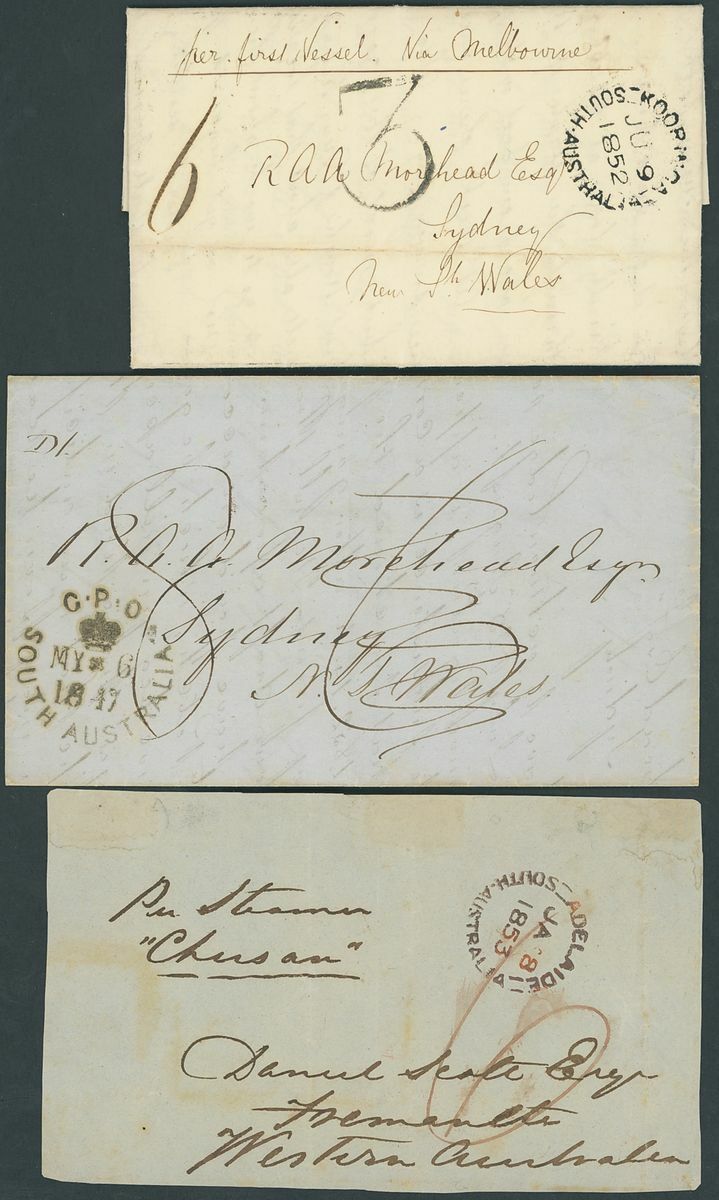 per first Vessel. Via Melbourne
6
3
KOORINGA
JU 9
1852
SOUTH-AUSTRALIA
R A A Morehead Esq
Sydney
New Sh Wales
R. A. A. Morehead Esqr
Sydney
N. S. Wales
G·P·O
MY* 6
1847
SOUTH AUSTRALIA
Per Steamer
"Chusan"
ADELAIDE
JA 8
1853
SOUTH-AUSTRALIA
Daniel Scott Esqr
Fremantle
Western Australia